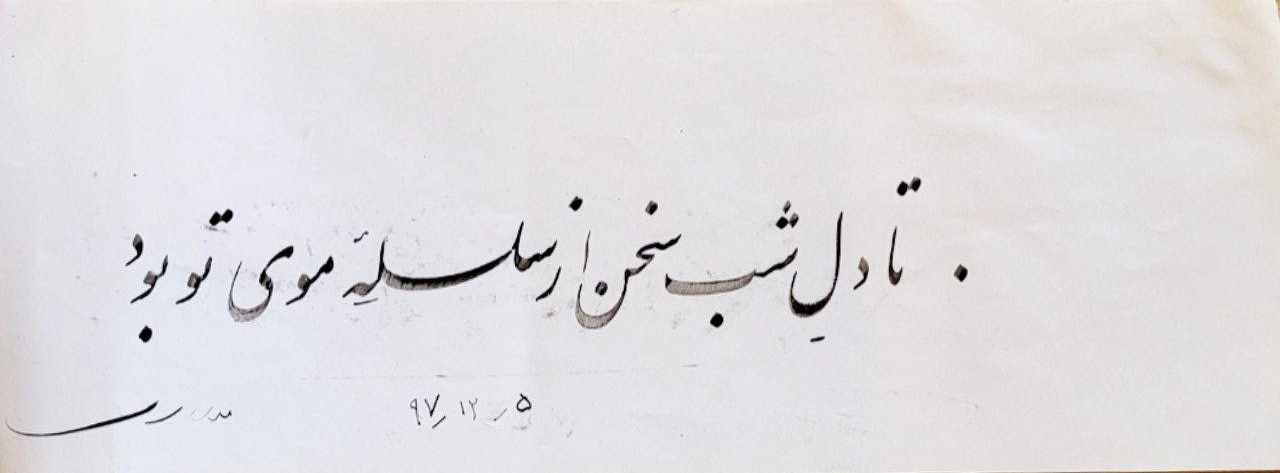 تا دلِ شب سخن از سلسلهٔ موی تو بود
۹۷٫۱۲٫۵